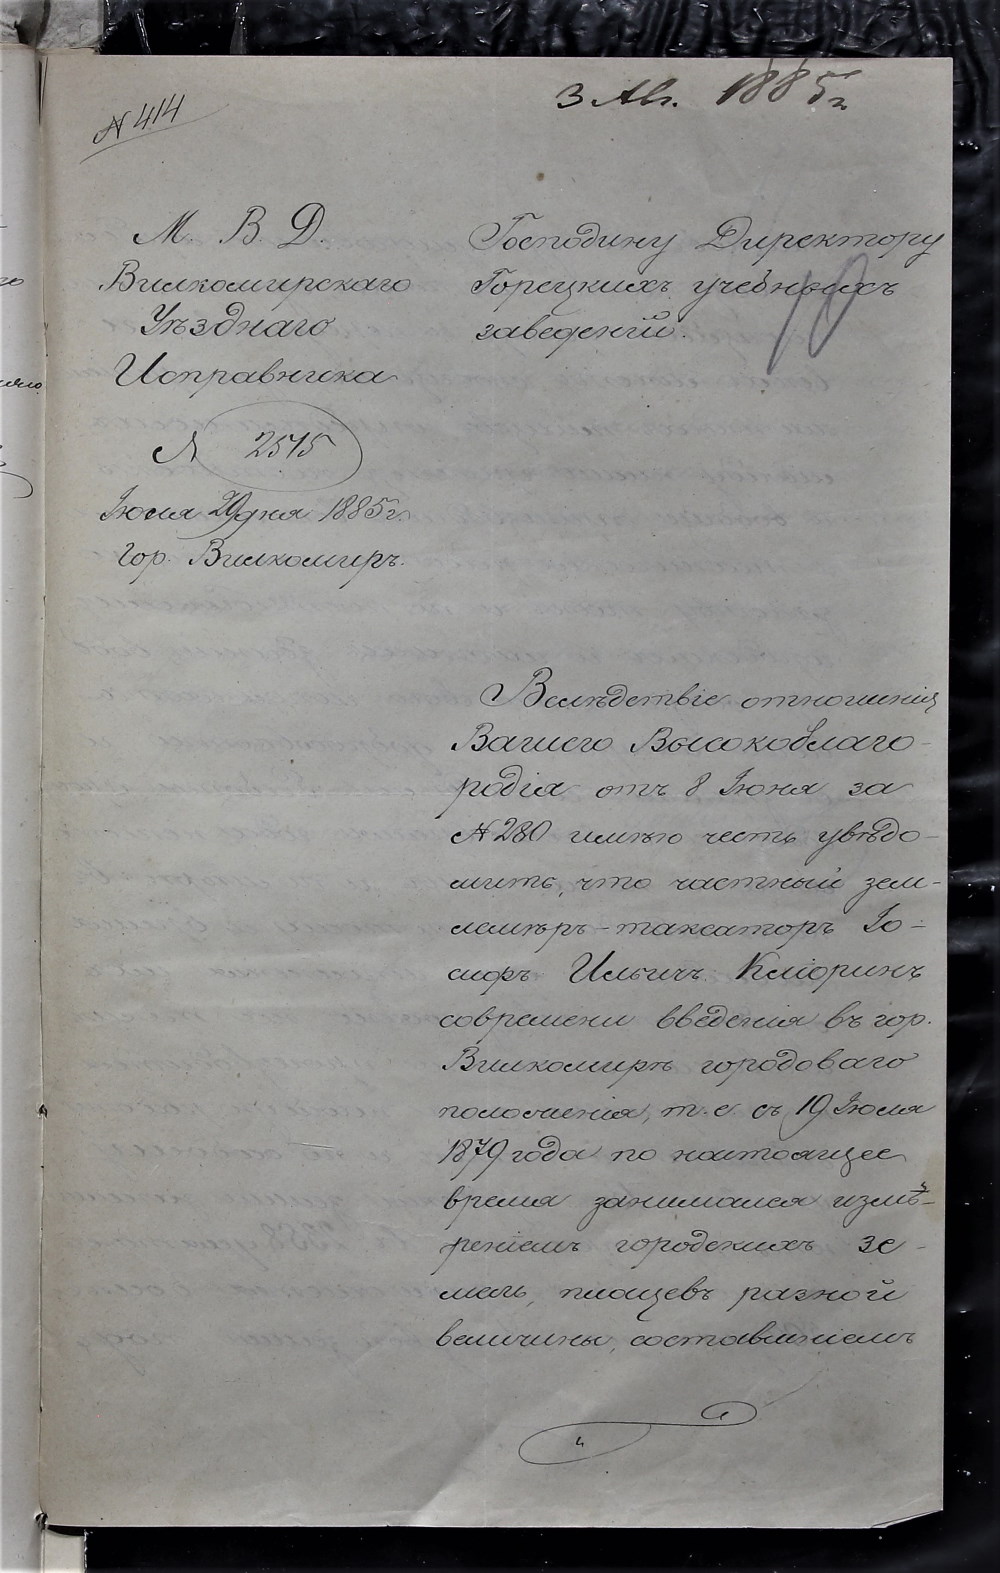 3 Авг. 1885 г.
№ 414
М. В. Д.
Вилкомирскаго
Уѣзднаго
Исправника
№ 2515
Іюля 29 дня 1885 г.
гор. Вилкомиръ.
Господину Директору
Горецкихъ учебныхъ
заведеній.
Вслѣдствіе отношенія
Вашего Высокоблаго-
родія отъ 8 Іюня за
№ 280 имѣю честь увѣдо-
мить, что частный зем-
лемѣръ-таксаторъ Іо-
сифъ Ильичъ Кліоринъ
современи введенія въ гор.
Вилкомирѣ городоваго
положенія, т. е. съ 19 Іюля
1879 года по настоящее
время занимался измѣ-
реніемъ городскихъ зе-
мель, плацевъ разной
величины, составленіемъ